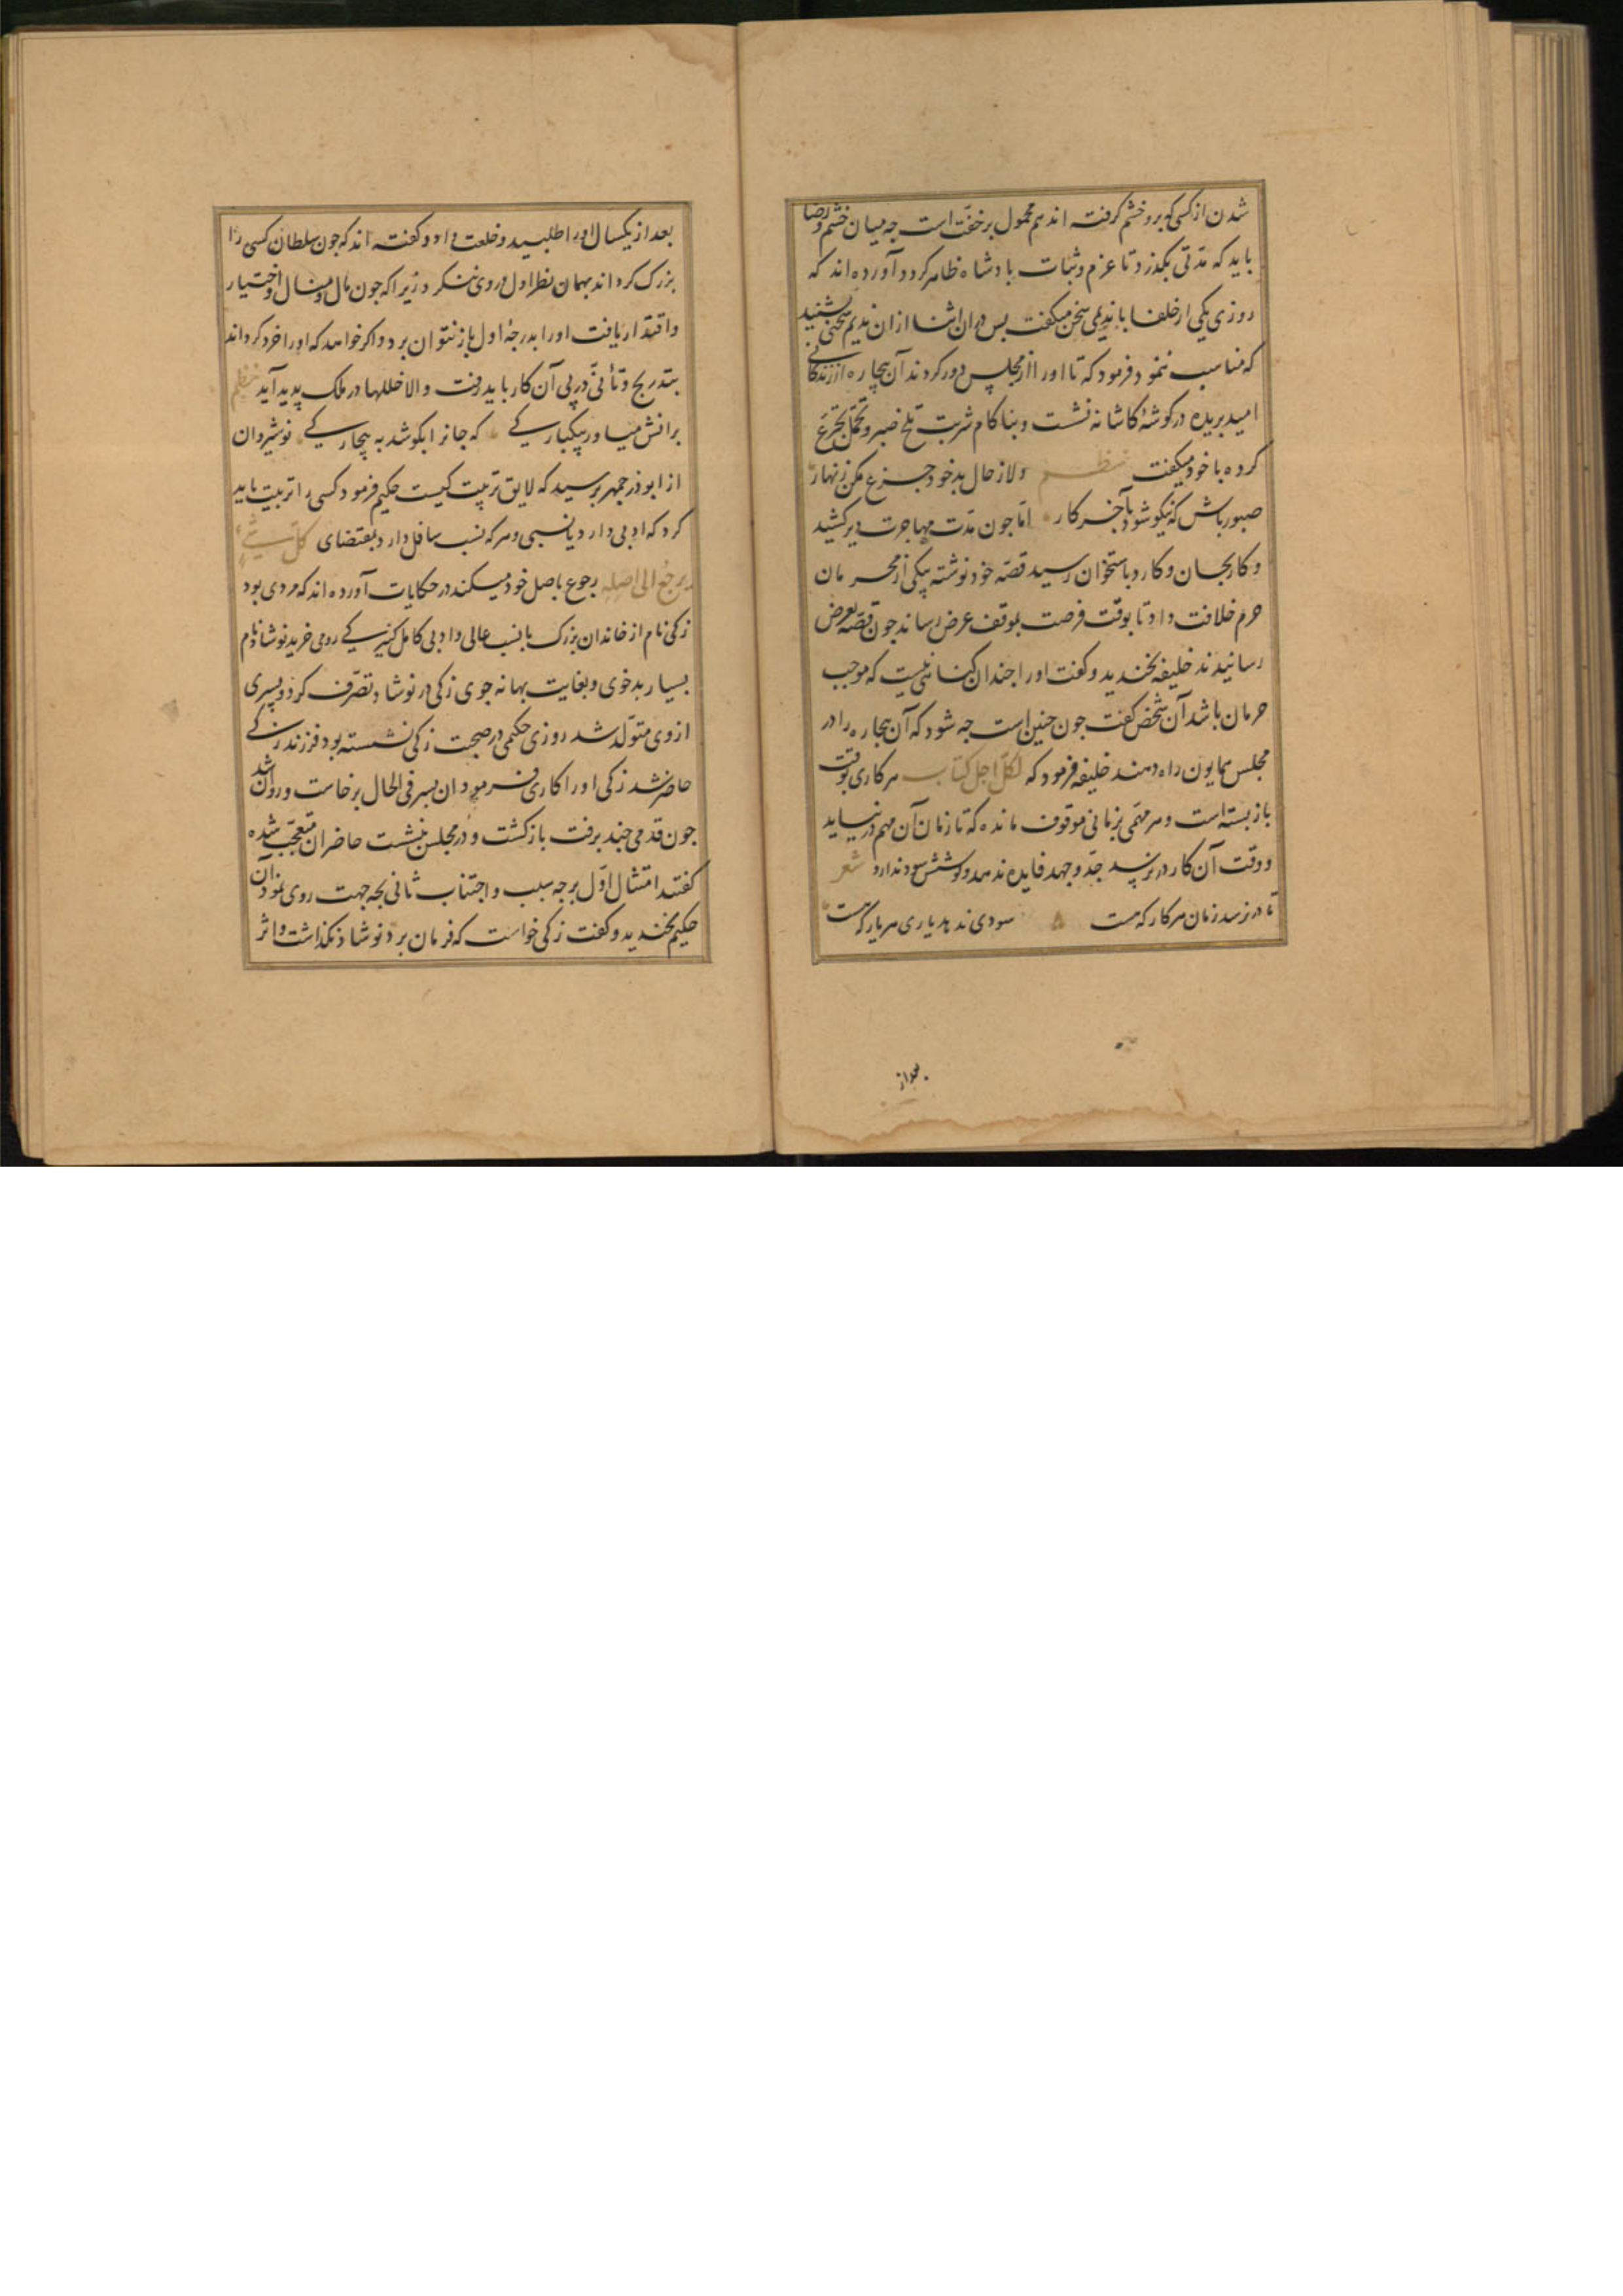 شدن از کسی که برو خشم گرفته اند هم محمول بر خفّت است جه میان خشم و رضا
باید که مدّتی بکذرد تا عزم و ثبات بادشاه ظاهر کردد آورده اند که
روزی یکی از خلفا با ندیمی سخن میکفت بس در ان اثنا از ان ندیم سخنی بشنید
که مناسب ننمود فرمود که تا اورا از مجلس دور کردند آن بیچاره از زندکانی
امید بریده در کوشهٔ کاشانه نشست و بناکام شربت تلخ صبر و تحمّل تجرّع
کرده با خود میکفت نظم دلا ز حال بد خود جزع مکن زنهار
صبور باش که نیکو شود بآخر کار امّا جون مدّت مهاجرت دیر کشید
و کار بجان و کارد باستخوان رسید قصّه خود نوشته بیکی از محرمان
حرم خلافت داد تا بوقت فرصت بموقف عرض رساند جون قصّه بعرض
رسانیدند خلیفه بخندید و کفت اورا جندان کناه نیست که موجب
حرمان باشد آن شخص کفت جون جنین است جه شود که آن بیجاره را در
مجلس همایون راه دهند خلیفه فرمود که لکلّ اجل کتاب هر کاری بوقت
باز بسته است و هر مهمّی بزمانی موقوف مانده که تا زمان آن مهم در نیاید
و وقت آن کار در نرسد جدّ و جهد فایده ندهد و کوشش سود ندارد شعر
تا در نرسد زمان هر کار که هست سودی ندهد یاری هر یار که هست
بعد از
بعد از یکسال اورا طلبید و خلعت داد و کفته اند که جون سلطان کسی را
بزرک کرداند بهمان نظر اول در وی ننکرد زیرا که جون مال و منال و اختیار
و اقتدار یافت اورا بدرجهٔ اول باز نتوان برد و اکر خواهد که اورا خرد کرداند
بتدریج و تأنّی در پی آن کار باید رفت و الا خللها در ملک پدید آید نظم
برانش میاور بیکبارکی که جانرا بکوشد به بیچارکی نوشیروان
از ابوذرجمهر برسید که لایق تربیت کیست حکیم فرمود کسی را تربیت باید
کرد که ادبی دارد یا نسبی و هر که نسب سافل دارد بمقتضای کلّ شیءٍ
یرجع الی اصله رجوع باصل خود میکند در حکایات آورده اند که مردی بود
زکی نام از خاندان بزرک با نسب عالی و ادبی کامل کنیزکی رومی خرید نوشاد نام
بسیار بدخوی و بغایت بهانه جوی زکی در نوشاد تصرّف کرد و بسری
ازوی متولّد شد روزی حکیمی در صحبت زکی نشسته بود فرزند زکی
حاضر شد زکی اورا کاری فرمود ان بسر فی الحال برخاست و روان شد
جون قدمی جند برفت باز کشت و در مجلس بنشست حاضران متعجّب شده
کفتند امتثال اوّل بر جه سبب و اجتناب ثانی بجه جهت روی نمود آن
حکیم بخندید و کفت زکی خواست که فرمان برد نوشاد نکذاشت و اثر